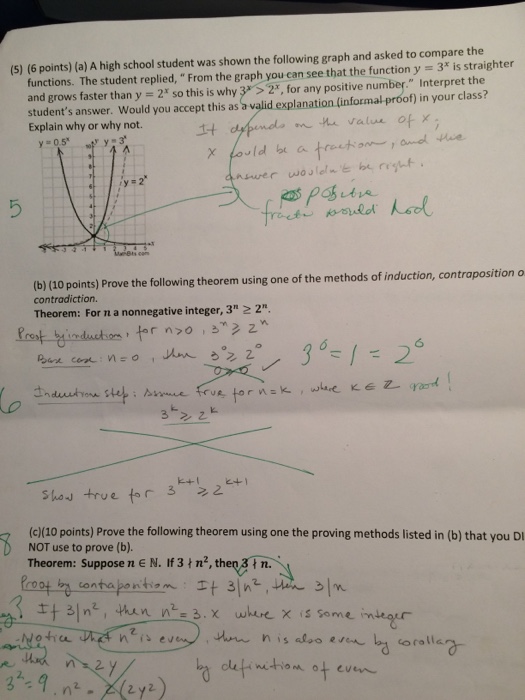 (5) (6 points) (a) A high school student was shown the following graph and asked to compare the
functions. The student replied, "From the graph you can see that the function y = 3ˣ is straighter
and grows faster than y = 2ˣ so this is why 3ˣ > 2ˣ, for any positive number." Interpret the
student's answer. Would you accept this as a valid explanation (informal proof) in your class?
Explain why or why not.
It depends on the value of x;
x could be a fraction, and the
answer wouldn't be right.
y = 0.5ˣ
y = 3ˣ
y = 2ˣ
MathBits.com
5
positive
would hold
(b) (10 points) Prove the following theorem using one of the methods of induction, contraposition o
contradiction.
Theorem: For n a nonnegative integer, 3ⁿ ≥ 2ⁿ.
Proof by induction, for n>0, 3ⁿ ≥ 2ⁿ
Base case: n=0, then 3⁰ ≥ 2⁰
3⁰ = 1 = 2⁰
6
Induction step: Assume true for n=k, where k ∈ Z good!
3ᵏ ≥ 2ᵏ
Show true for 3ᵏ⁺¹ ≥ 2ᵏ⁺¹
8
(c)(10 points) Prove the following theorem using one the proving methods listed in (b) that you DI
NOT use to prove (b).
Theorem: Suppose n ∈ N. If 3 ∤ n², then 3 ∤ n.
Proof by contraposition: If 3|n², then 3|n
If 3|n², then n² = 3·x where x is some integer
Notice that n² is even, then n is also even by corollary
then n = 2y by definition of even
3² = 9 n² = 2(2y²)